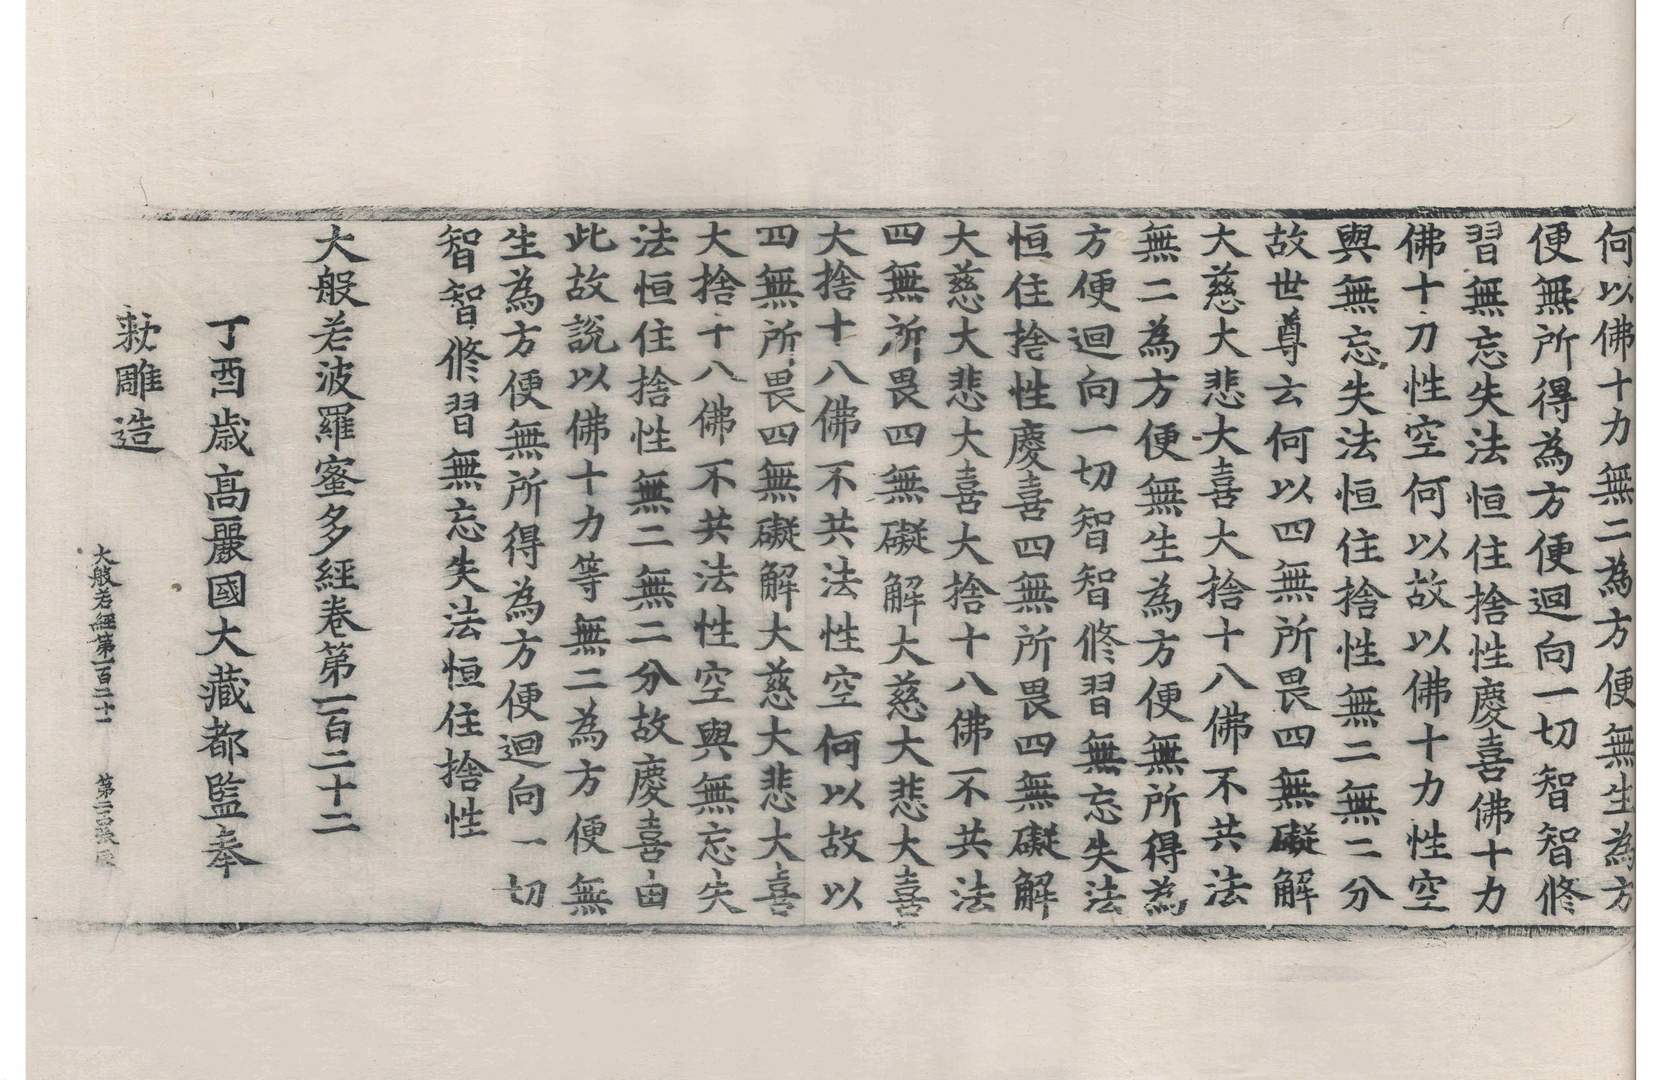 何以佛十力無二為方便無生為方
便無所得為方便迴向一切智智修
習無忘失法恒住捨性慶喜佛十力
佛十力性空何以故以佛十力性空
與無忘失法恒住捨性無二無二分
故世尊云何以四無所畏四無礙解
大慈大悲大喜大捨十八佛不共法
無二為方便無生為方便無所得為
方便迴向一切智智修習無忘失法
恒住捨性慶喜四無所畏四無礙解
大慈大悲大喜大捨十八佛不共法
四無所畏四無礙解大慈大悲大喜
大捨十八佛不共法性空何以故以
四無所畏四無礙解大慈大悲大喜
大捨十八佛不共法性空與無忘失
法恒住捨性無二無二分故慶喜由
此故說以佛十力等無二為方便無
生為方便無所得為方便迴向一切
智智修習無忘失法恒住捨性
大般若波羅蜜多經卷第一百二十二
丁酉歲高麗國大藏都監奉
勅雕造
大般若經第一百二十二 第二名張